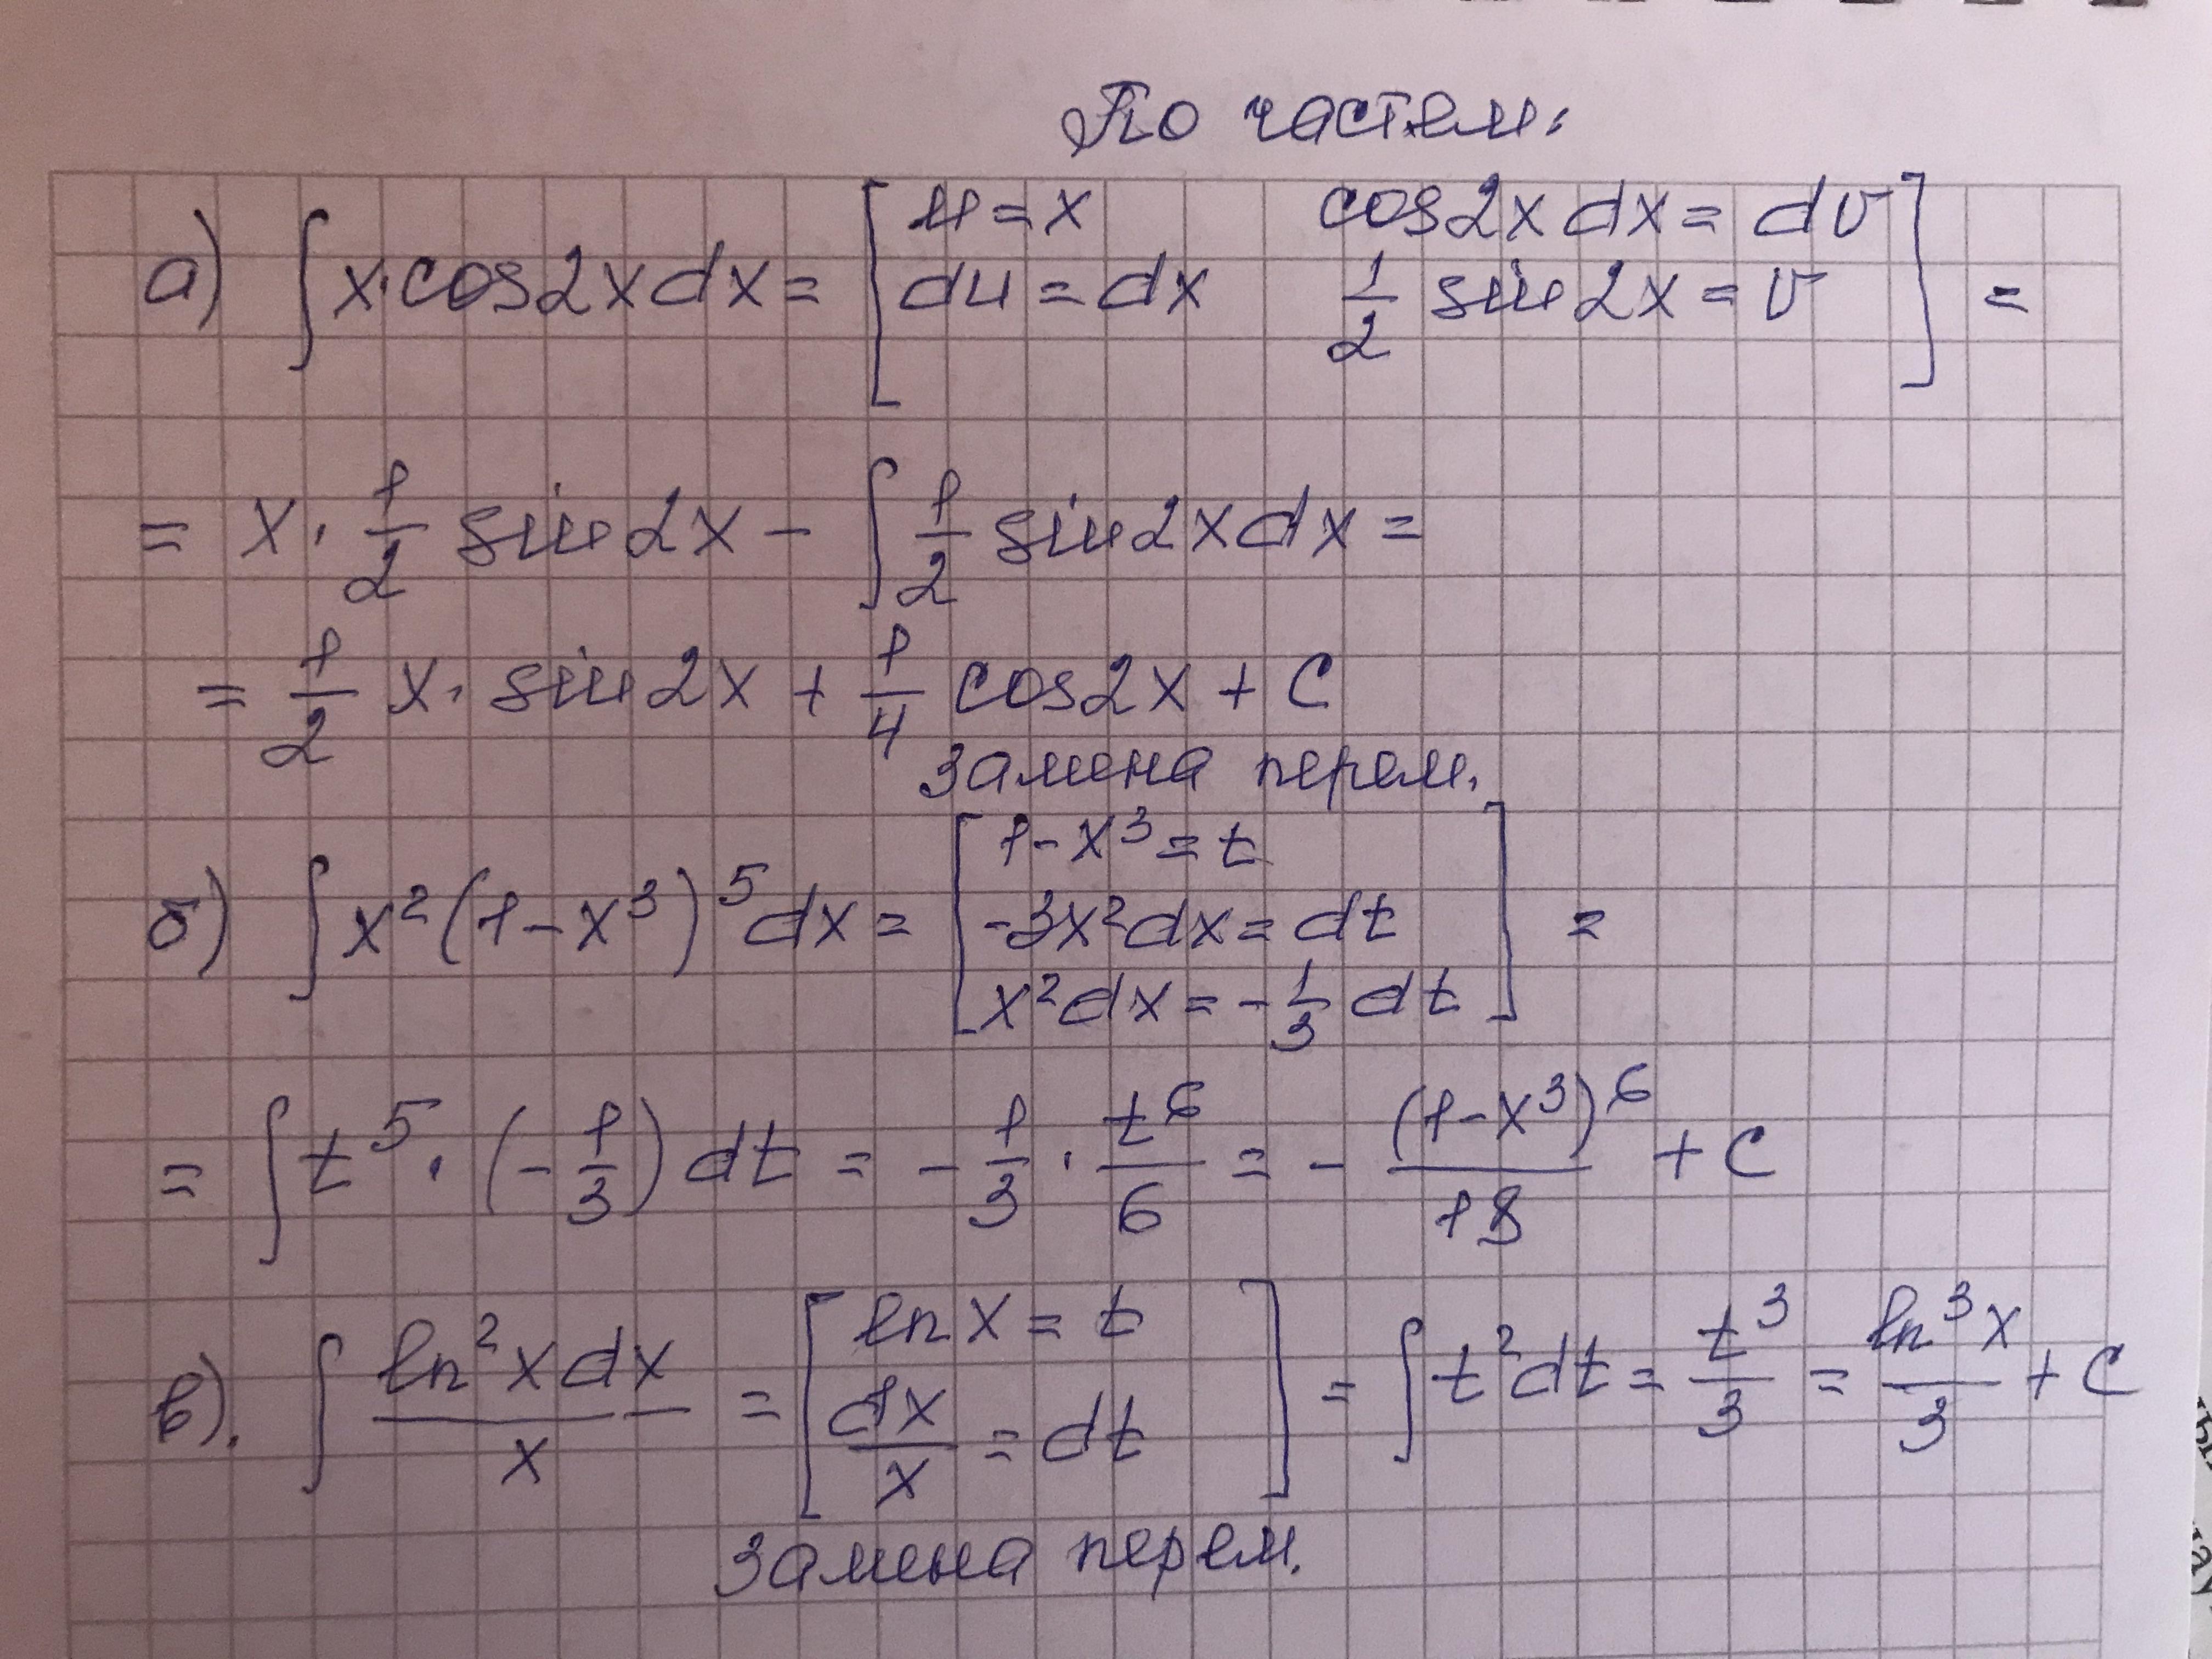 По частям:
а) ∫ x·cos2x dx = [ u = x cos2x dx = dv
du = dx 1/2 sin2x = v ] =
= x · 1/2 sin2x - ∫ 1/2 sin2x dx =
= 1/2 x · sin2x + 1/4 cos2x + C
Замена перем.
б) ∫ x²(1-x³)⁵dx = [ 1-x³ = t
-3x²dx = dt
x²dx = -1/3 dt ] =
= ∫ t⁵ · (-1/3) dt = -1/3 · t⁶/6 = - (1-x³)⁶/18 + C
в). ∫ ln²x dx/x = [ ln x = t
dx/x = dt ] = ∫ t²dt = t³/3 = ln³x/3 + C
Замена перем.